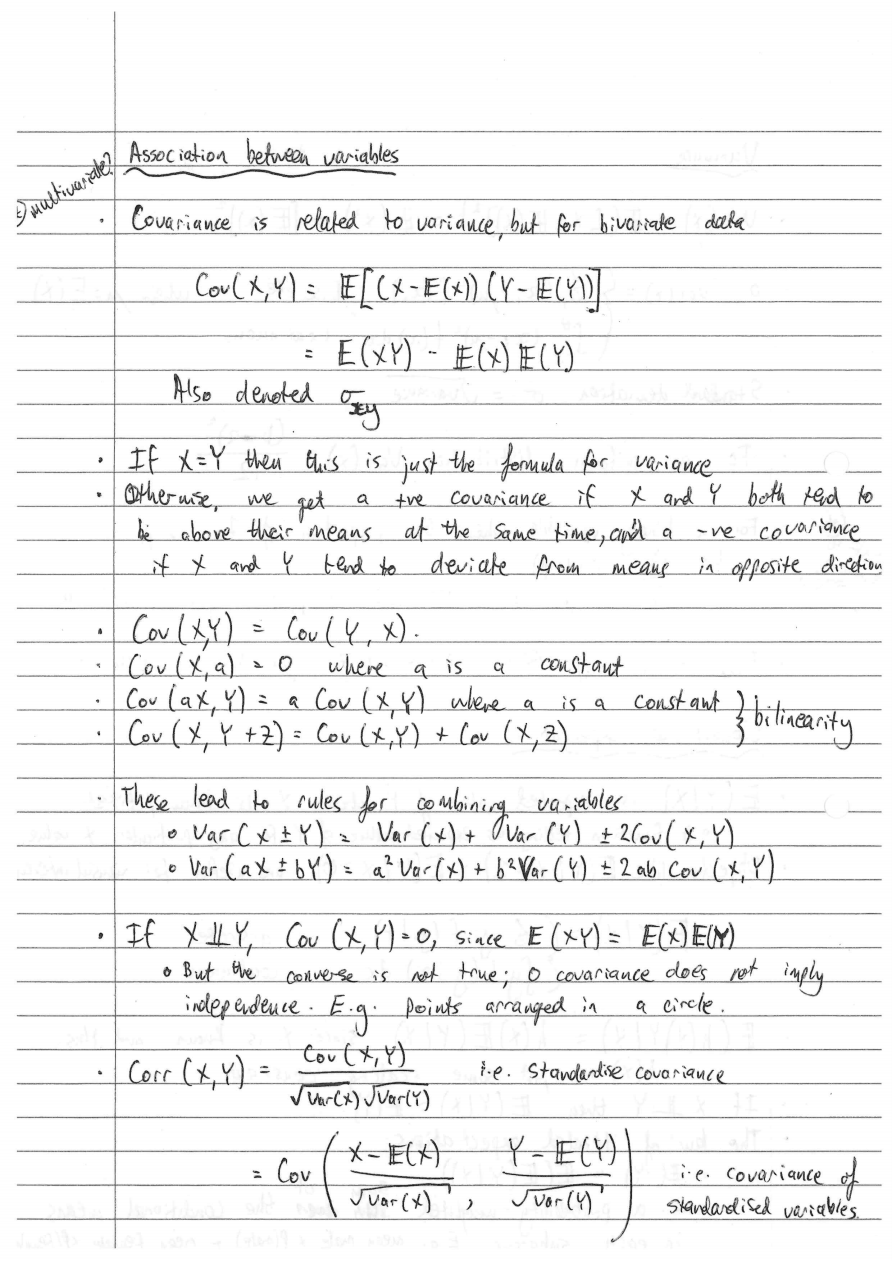 Association between variables
multivariate?
· Covariance is related to variance, but for bivariate data
Cov(X,Y) = E[(X-E(X))(Y-E(Y))]
= E(XY) - E(X)E(Y)
Also denoted σxy
· If X=Y then this is just the formula for variance
· Otherwise, we get a +ve covariance if X and Y both tend to
be above their means at the same time, and a -ve covariance
if X and Y tend to deviate from means in opposite direction
· Cov(X,Y) = Cov(Y,X).
· Cov(X,a) = 0 where a is a constant
· Cov(aX,Y) = a Cov(X,Y) where a is a constant } bilinearity
· Cov(X,Y+Z) = Cov(X,Y) + Cov(X,Z)
These lead to rules for combining variables
∘ Var(X±Y) = Var(X) + Var(Y) ± 2Cov(X,Y)
∘ Var(aX±bY) = a²Var(X) + b²Var(Y) ± 2ab Cov(X,Y)
· If X⫫Y, Cov(X,Y)=0, since E(XY) = E(X)E(Y)
∘ But the converse is not true; 0 covariance does not imply
independence. E.g. points arranged in a circle.
· Corr(X,Y) = Cov(X,Y) / √Var(X) √Var(Y) i.e. standardise covariance
= Cov( X-E(X) / √Var(X) , Y-E(Y) / √Var(Y) ) i.e. covariance of
standardised variables.